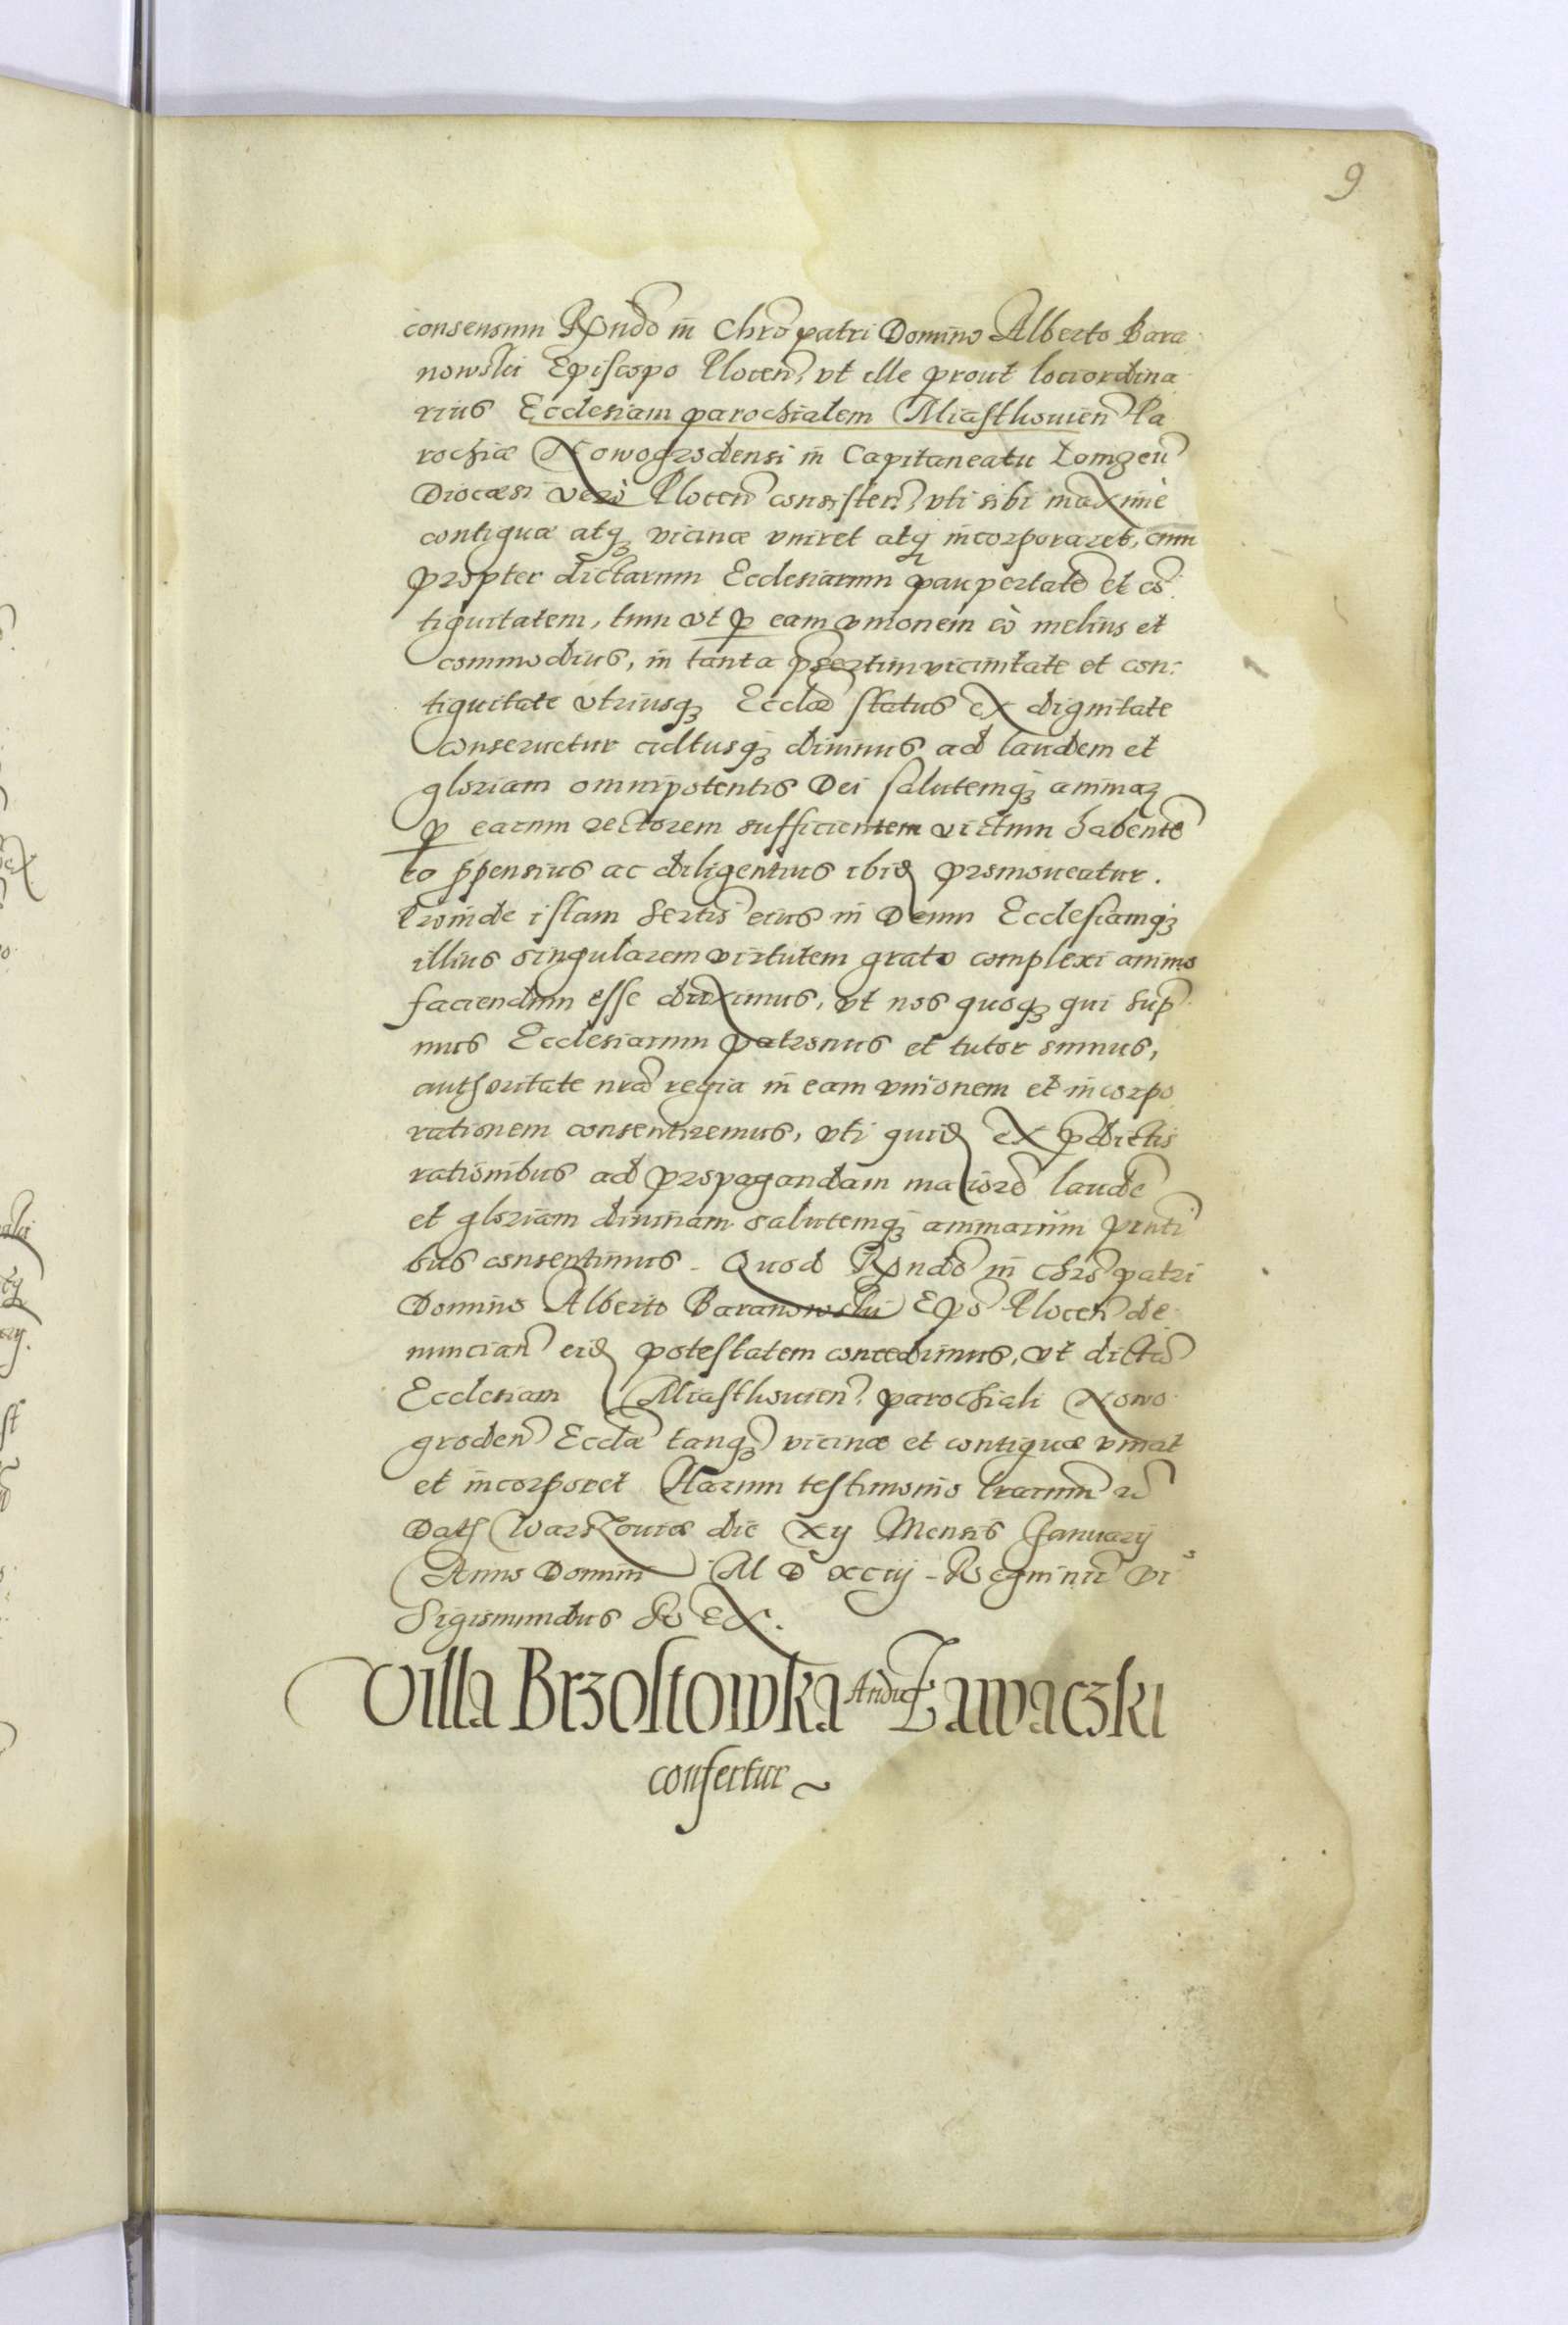 9
consensum Rx̃ndo in Chro patri Domino Alberto Bara
nowski Episcopo Plocen̄, vt ille prout loci ordina
rius Ecclesiam parochialem Miasthouien̄ Pa
rochiæ Nowogrodensi in Capitaneatu Lomzen̄
Diocæsi verò Plocen̄ consisten̄, vti sibi maximè
contiguæ atq3 vicinæ vniret atq3 incorporaret, cum
propter dictarum Ecclesiarum paupertatē et cō
tiguitatem, tum vt ꝑ eam vnionem eò melius et
commodius, in tanta p̄sertim vicinitate et con:
tiguitate vtriusq3 Eccłæ status et dignitate
conseruetur cultusq3 diuinus ad laudem et
gloriam omnipotentis Dei salutemq3 animaꝝ
ꝑ earum rectorem sufficientem victum habentē
eo ꝓpensius ac diligentius ibid promoueatur.
Proinde istam Sertis eius in Deum Ecclesiamq3
illius singularem virtutem grato complexi animo
faciendum esse duximus, vt nos quoq3 qui sup̄
mus Ecclesiarum patronus et tutor sumus,
authoritate nrā regia in eam vnionem et incorpo
rationem consentiremus, vti quid ex p̄dictis
rationibus ad propagandam maiorē laudē
et gloriam diuinam salutemq3 animarum pn̄ti
bus consentimus. Quod Rx̃ndo in Chro patri
Domino Alberto Baranowski Epō Plocen̄ de
nuncian̄ eid potestatem concedimus, vt dictā
Ecclesiam Miasthouien̄. parochiali Nowo
groden̄ Ecclæ tanq3 vicinæ et contiguæ vniat
et incorporet Harum testimonio lrarum rc̄
Dath Warszouiæ die xij Mensis Januarij
Anno Domini M D xciij Regni nrī vi°
Sigismundus Rex.
Villa Brzostowka Andr̄ Zawaczki
confertur